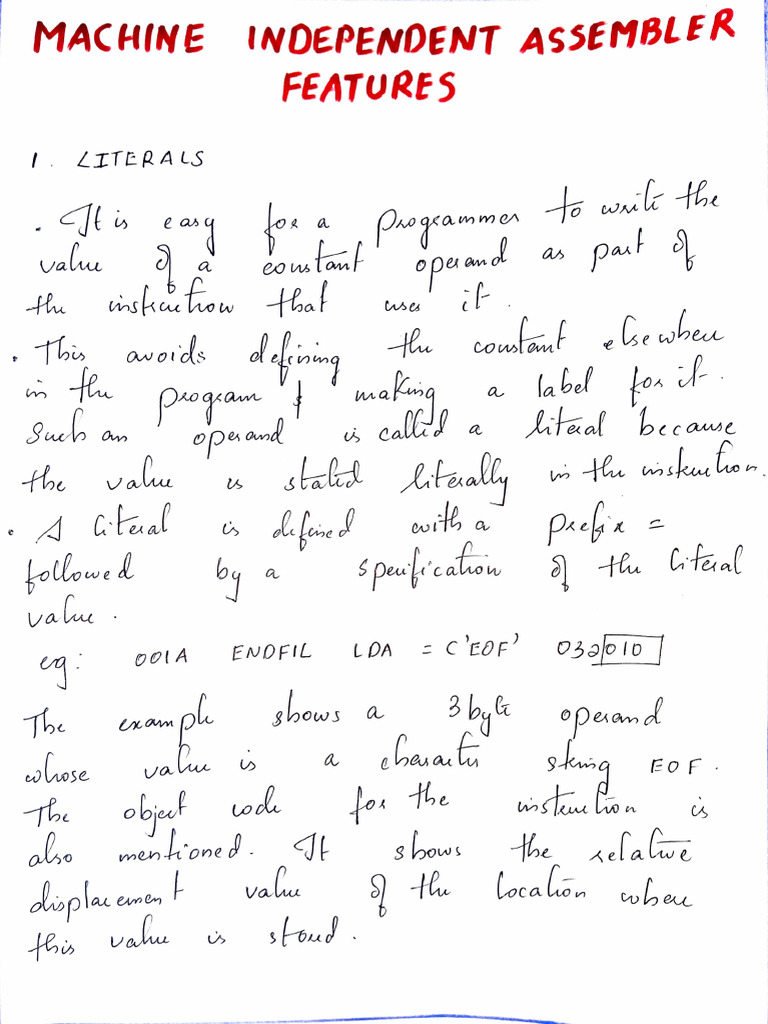 MACHINE INDEPENDENT ASSEMBLER
FEATURES
1. LITERALS
. It is easy for a programmer to write the
value of a constant operand as part of
the instruction that uses it.
. This avoids defining the constant elsewhere
in the program & making a label for it.
Such an operand is called a literal because
the value is stated literally in the instruction.
. A literal is defined with a prefix =
followed by a specification of the literal
value.
eg: 001A ENDFIL LDA = C'EOF' 032010
The example shows a 3 byte operand
whose value is a character string EOF.
The object code for the instruction is
also mentioned. It shows the relative
displacement value of the location where
this value is stored.